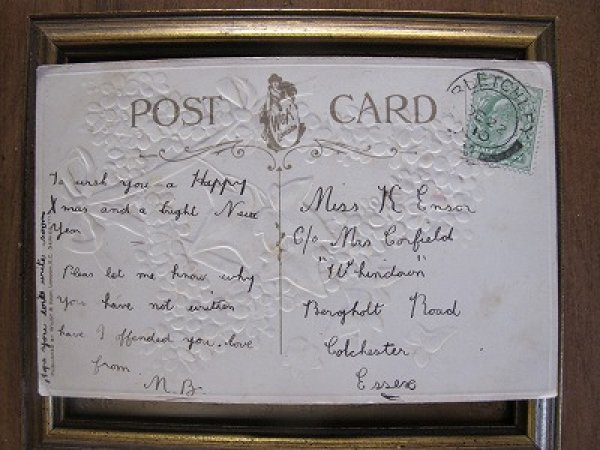 POST CARD
BLETCHLEY
To wish you a Happy
Xmas and a bright New
Year
Pleas let me know why
you have not written
have I offended you. love
from
M. B.
Miss K Ensor
C/o Mrs Corfield
"Whindown"
Bergholt Road
Colchester
Essex